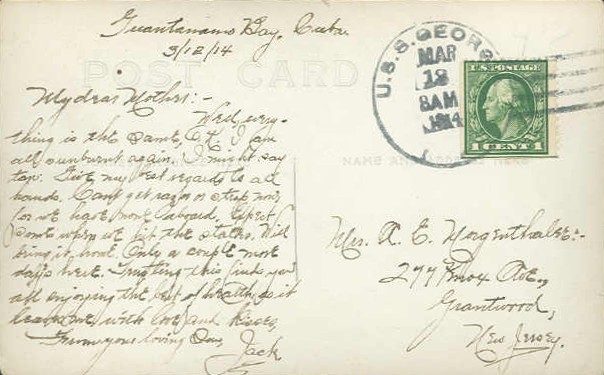 Guantanamo Bay, Cuba.
3/12/14
POST CARD
My dear Mother:-
Well, every-
thing is the same, I am
all sunburnt again, I might say
tan. Give my best regards to all
hands. Can't get razor or strop now
for we have none aboard. Expect
some when we hit the states. Will
bring it home. Only a couple more
days here. Trusting this finds you
all enjoying the best of health, as it
leaves me, with love and kisses,
From your loving Son,
Jack
U.S.S. GEORG
MAR
12
8AM
1914
U.S. POSTAGE
1 CENT 1
NAME AND ADDRESS HERE
Mrs. A. E. Morgenthaler:-
277 Knox Ave.,
Grantwood,
New Jersey.